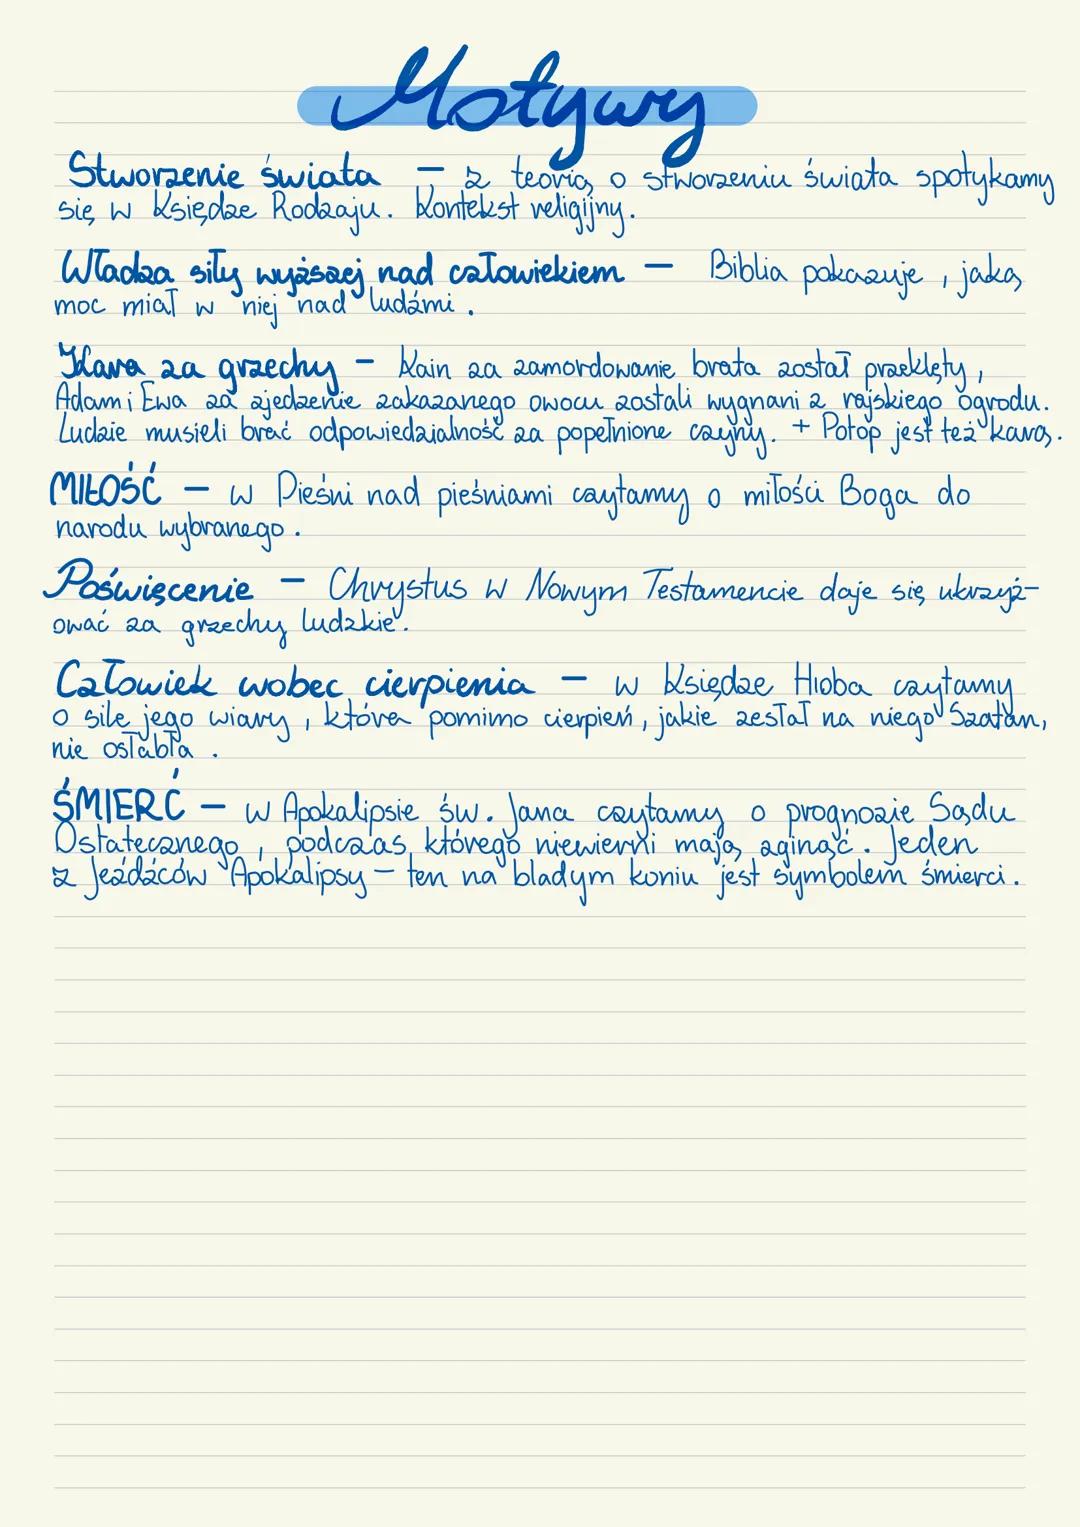 Motywy
Stworzenie świata – z teorią o stworzeniu świata spotykamy
się w Księdze Rodzaju. Kontekst religijny.
Władza siły wyższej nad człowiekiem – Biblia pokazuje, jaką
moc miał w niej nad ludźmi.
Kara za grzechy – Kain za zamordowanie brata został przeklęty,
Adam i Ewa za zjedzenie zakazanego owocu zostali wygnani z rajskiego ogrodu.
Ludzie musieli brać odpowiedzialność za popełnione czyny. + Potop jest też karą.
MIŁOŚĆ – w Pieśni nad pieśniami czytamy o miłości Boga do
narodu wybranego.
Poświęcenie – Chrystus w Nowym Testamencie daje się ukrzyż-
ować za grzechy ludzkie.
Człowiek wobec cierpienia – w Księdze Hioba czytamy
o sile jego wiary, która pomimo cierpień, jakie zesłał na niego Szatan,
nie osłabła.
ŚMIERĆ – w Apokalipsie św. Jana czytamy o prognozie Sądu
Ostatecznego, podczas którego niewierni mają zginąć. Jeden
z Jeźdźców Apokalipsy – ten na bladym koniu jest symbolem śmierci.